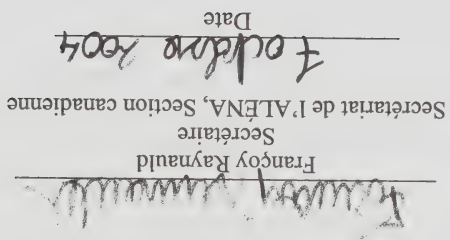 Françoy Raynauld
Secrétaire
Secrétariat de l'ALÉNA, Section canadienne
7 octobre 2004
Date